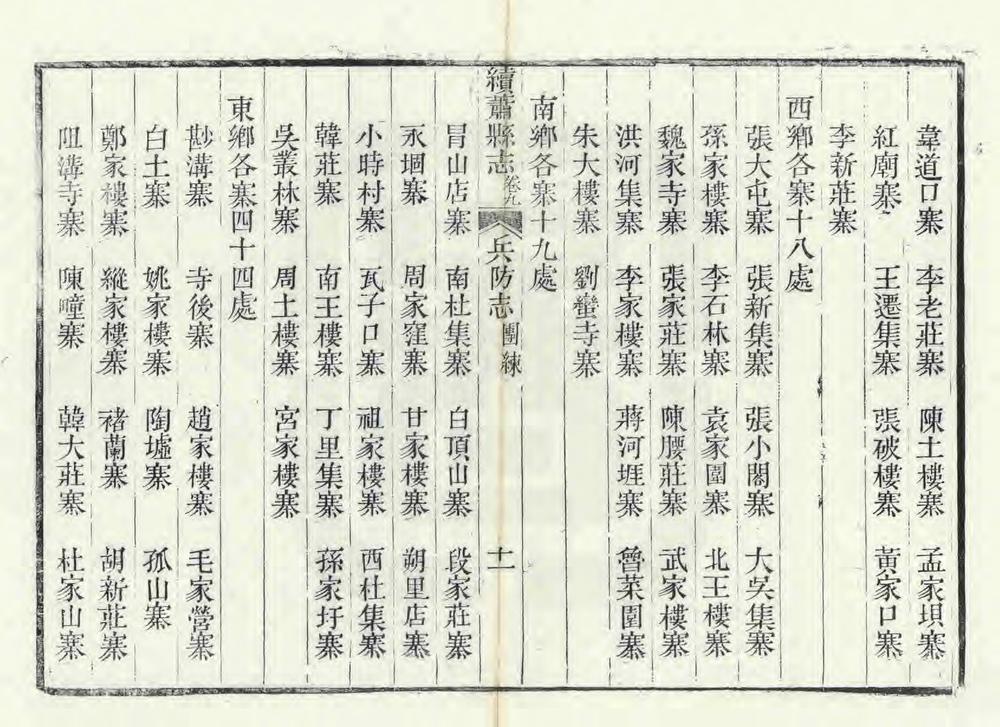 韋道口寨 李老莊寨 陳土樓寨 孟家垻寨
紅廟寨 王遷集寨 張破樓寨 黃家口寨
李新莊寨
西鄉各寨十八處
張大屯寨 張新集寨 張小閣寨 大吳集寨
孫家樓寨 李石林寨 袁家圍寨 北王樓寨
魏家寺寨 張家莊寨 陳腰莊寨 武家樓寨
洪河集寨 李家樓寨 蔣河堐寨 曾菜園寨
朱大樓寨 劉蠻寺寨
南鄉各寨十九處
續蕭縣志 卷九 兵防志 團練 十一
冐山店寨 南杜集寨 白頂山寨 段家莊寨
永堌寨 周家窪寨 甘家樓寨 朔里店寨
小時村寨 瓦子口寨 祖家樓寨 西杜集寨
韓莊寨 南王樓寨 丁里集寨 孫家圩寨
吳叢林寨 周土樓寨 宮家樓寨
東鄉各寨四十四處
尠溝寨 寺後寨 趙家樓寨 毛家營寨
白土寨 姚家樓寨 陶墟寨 孤山寨
鄭家樓寨 縱家樓寨 褚蘭寨 胡新莊寨
阻溝寺寨 陳疃寨 韓大莊寨 杜家山寨